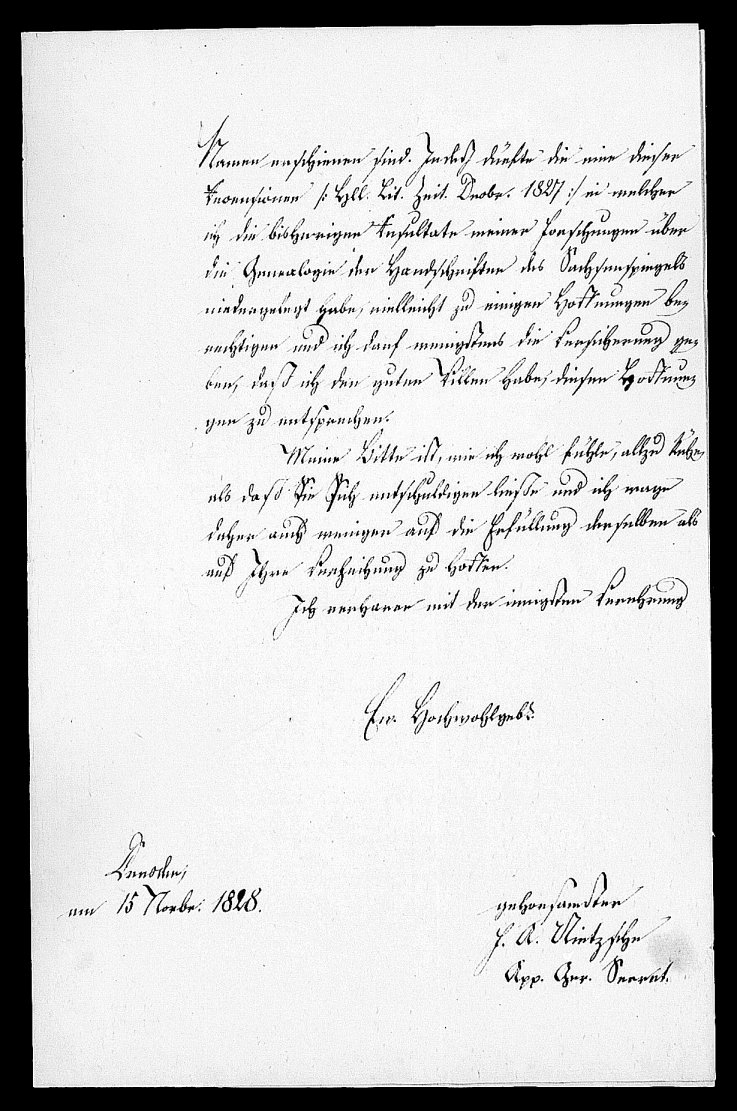 Namen erschienen sind. Indeß dürfte die eine dieser
Recensionen /: Hll. Lit. Zeit. Decbr. 1827 :/ in welcher
ich die bisherigen Resultate meiner Forschungen über
die Genealogie der Handschriften des Sachsenspiegels
niedergelegt habe, vielleicht zu einigen Hoffnungen be-
rechtigen und ich darf wenigstens die Versicherung ge-
ben, daß ich den guten Willen habe, diesen Hoffnun-
gen zu entsprechen.
Meine Bitte ist, wie ich wohl fühle, allzu kühn,
als daß Sie Sich entschuldigen ließe und ich wage
daher auch weniger auf die Erfüllung derselben als
auf Ihre Verzeihung zu hoffen.
Ich verharre mit der innigsten Verehrung
Ew. Hochwohlgeb.
Dresden,
am 15 Novbr. 1828.
gehorsamster
F. A. Nietzsche
App. Ger. Secret.